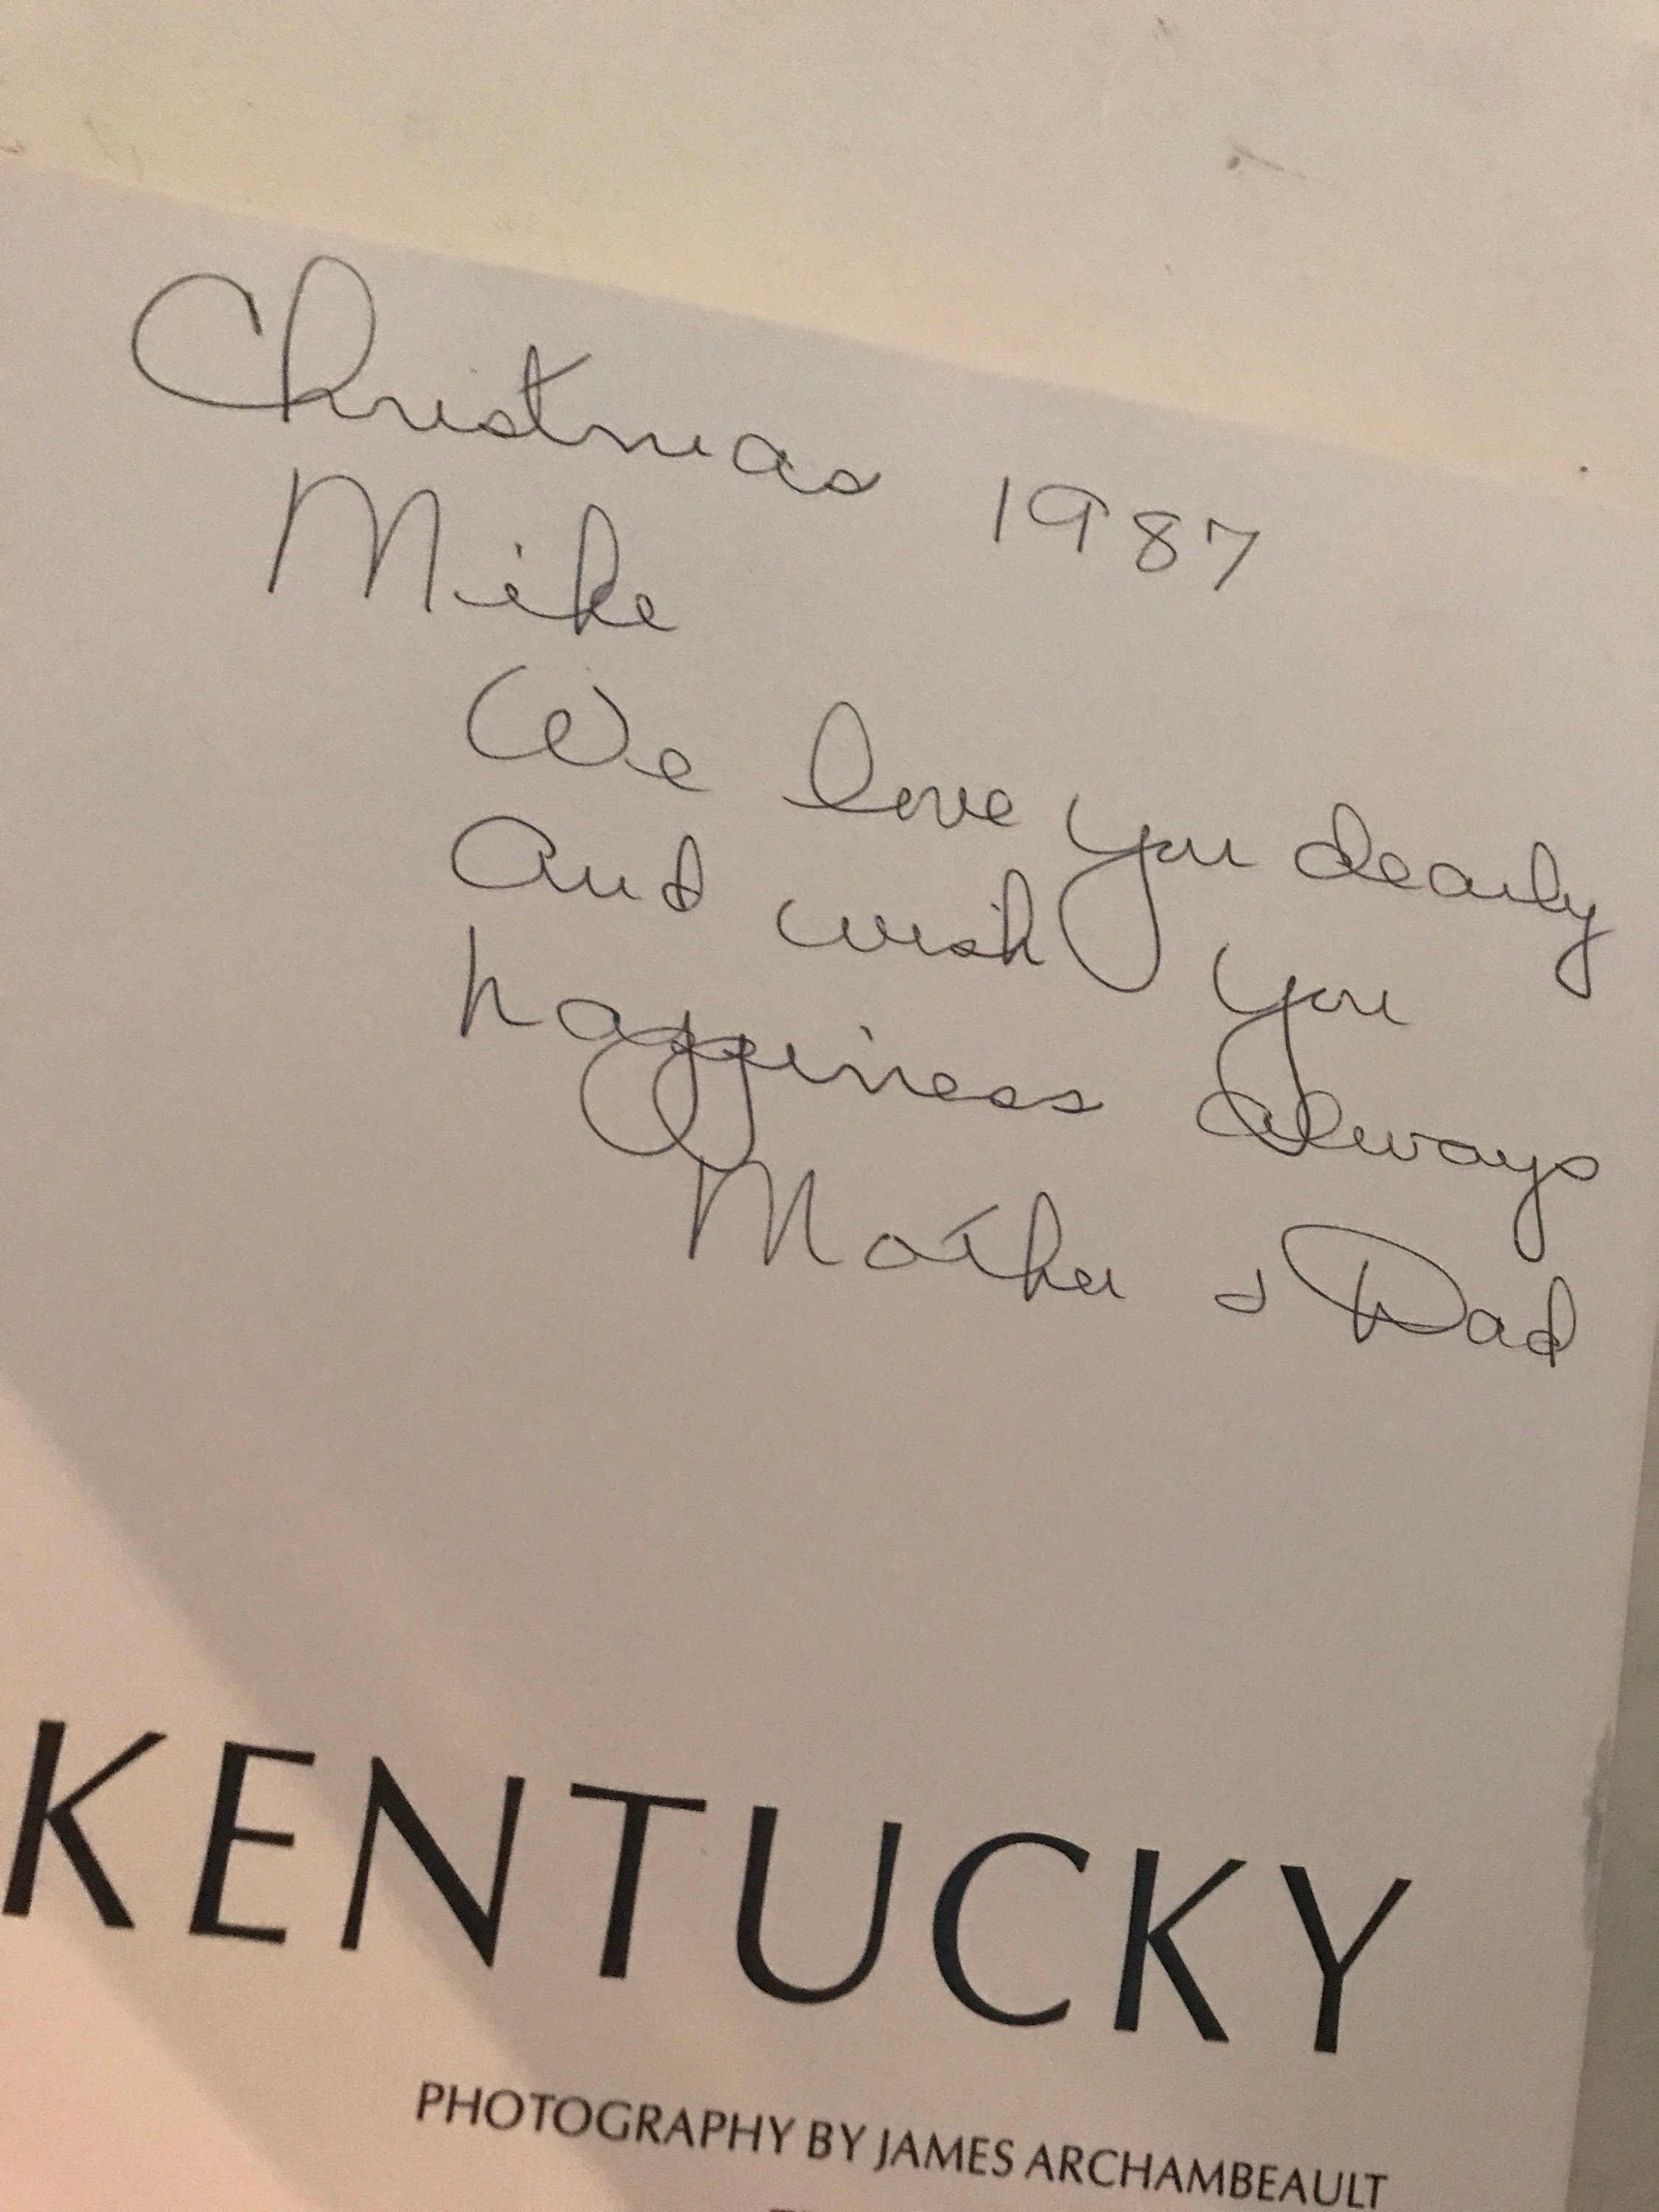 Christmas 1987
Mike
We love you dearly
And wish you
happiness always
Mother & Dad
KENTUCKY
PHOTOGRAPHY BY JAMES ARCHAMBEAULT